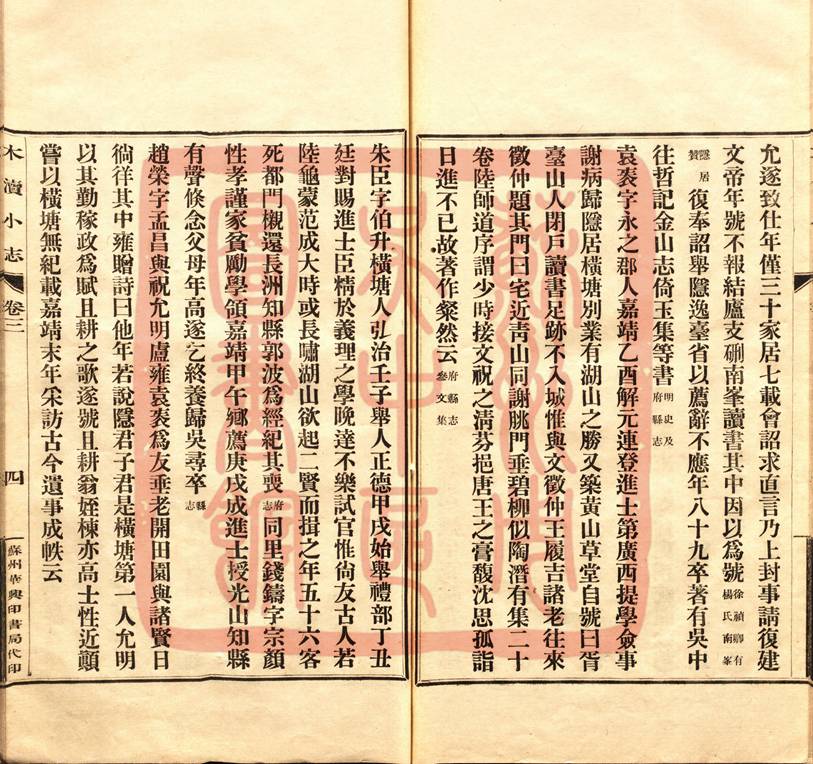 允遂致仕年僅三十家居七載會詔求直言乃上封事請復建
文帝年號不報結廬支硎南峯讀書其中因以爲號徐禎卿有楊氏南峯
隱居贊復奉詔舉隱逸臺省以薦辭不應年八十九卒著有吳中
往哲記金山志倚玉集等書明史及府縣志
袁袠字永之郡人嘉靖乙酉解元連登進士第廣西提學僉事
謝病歸隱居橫塘別業有湖山之勝又築黃山草堂自號曰胥
臺山人閉戶讀書足跡不入城惟與文徵仲王履吉諸老往來
徵仲題其門曰宅近靑山同謝朓門垂碧柳似陶潛有集二十
卷陸師道序謂少時接文祝之淸芬挹唐王之膏馥沈思孤詣
日進不已故著作粲然云府縣志參文集
朱臣字伯升橫塘人弘治壬子舉人正德甲戌始舉禮部丁丑
廷對賜進士臣精於義理之學晚達不樂試官惟尙友古人若
陸龜蒙范成大時或長嘯湖山欲起二賢而揖之年五十六客
死都門櫬還長洲知縣郭波爲經紀其喪府志同里錢鑄字宗顏
性孝謹家貧勵學領嘉靖甲午鄕薦庚戌成進士授光山知縣
有聲倏念父母年高遂乞終養歸吳尋卒縣志
趙榮字孟昌與祝允明盧雍袁袠爲友垂老開田園與諸賢日
徜徉其中雍贈詩曰他年若說隱君子君是橫塘第一人允明
以其勤稼政爲賦且耕之歌遂號且耕翁姪棟亦高士性近顚
嘗以橫塘無紀載嘉靖末年采訪古今遺事成帙云
木瀆小志
卷三
四
蘇州華興印書局代印